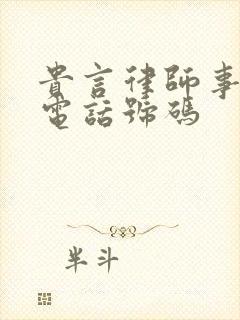 貴言律師事
電話號碼
半斗